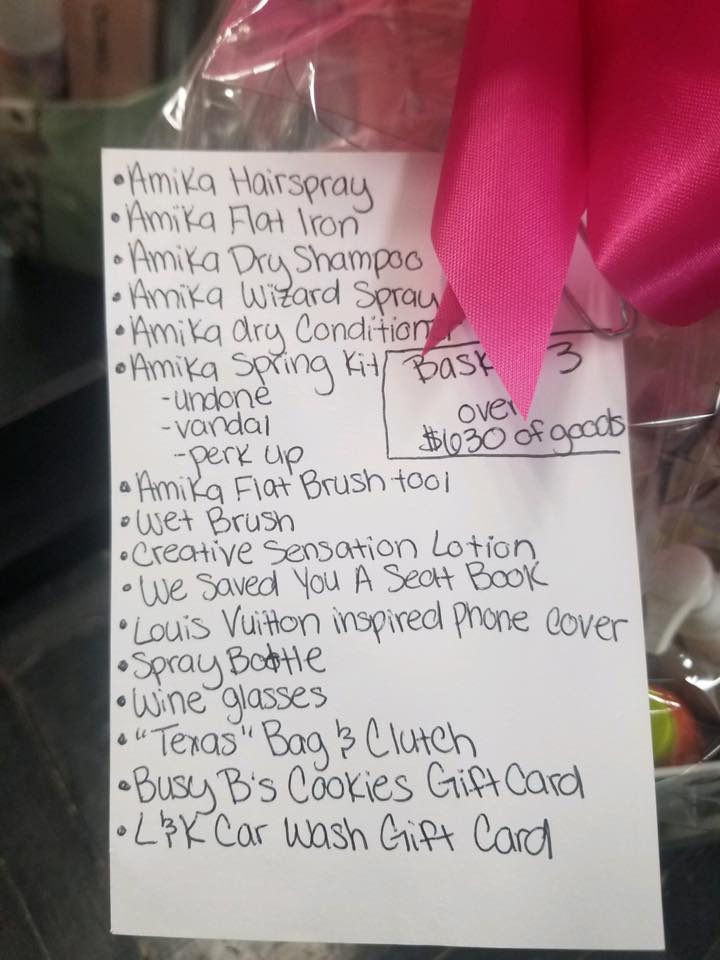 •Amika Hairspray
•Amika Flat Iron
•Amika Dry Shampoo
•Amika Wizard Spray
•Amika dry Condition
•Amika Spring Kit
-undone
-vandal
-perk up
Bask 3
over
$630 of goods
•Amika Flat Brush tool
•Wet Brush
•Creative Sensation Lotion
•We Saved You A Seat Book
•Louis Vuitton inspired phone cover
•Spray Bottle
•Wine glasses
•"Texas" Bag & Clutch
•Busy B's Cookies Gift Card
•L&K Car Wash Gift Card